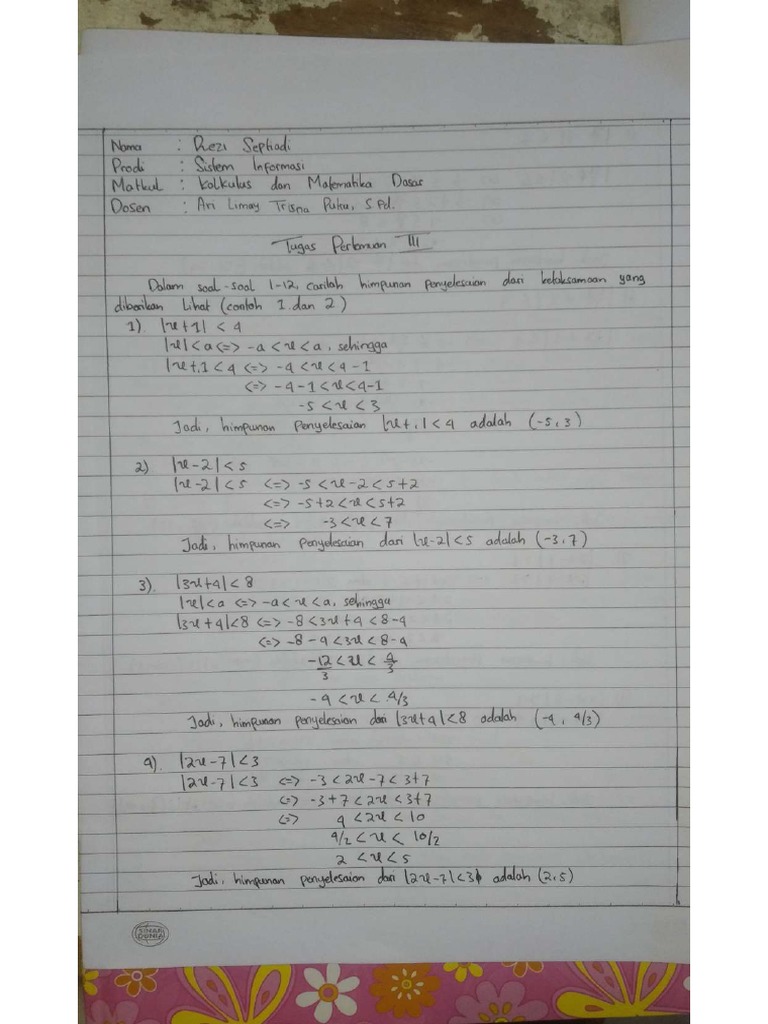 Nama : Rezi Sephadi
Prodi : Sistem Informasi
Matkul : Kalkulus dan Matematika Dasar
Dosen : Ari Limay Trisna Putra, S Pd.
Tugas Pertemuan III
Dalam soal-soal 1-12, carilah himpunan penyelesaian dari ketaksamaan yang
diberikan Lihat (contoh 1 dan 2)
1). |x+1| < 4
|x| < a <=> -a < x < a, sehingga
|x+,1 < 4 <=> -4 < x < 4 -1
<=> -4-1 < x < 4-1
-5 < x < 3
Jadi, himpunan penyelesaian |x+,| < 4 adalah (-5,3)
2) |x-2| < 5
|x-2| < 5 <=> -5 < x-2 < 5+2
<=> -5+2 < x < 5+2
<=> -3 < x < 7
Jadi, himpunan penyelesaian dari |x-2| < 5 adalah (-3,7)
3). |3x+4| < 8
|x| < a <=> -a < x < a, sehingga
|3x+4| < 8 <=> -8 < 3x+4 < 8-4
<=> -8-4 < 3x < 8-4
-12/3 < x < 4/3
-4 < x < 4/3
Jadi, himpunan penyelesaian dari |3x+4| < 8 adalah (-4, 4/3)
4). |2x-7| < 3
|2x-7| < 3 <=> -3 < 2x-7 < 3+7
<=> -3+7 < 2x < 3+7
<=> 4 < 2x < 10
4/2 < x < 10/2
2 < x < 5
Jadi, himpunan penyelesaian dari |2x-7| < 3 adalah (2,5)
SINAR
DUNIA